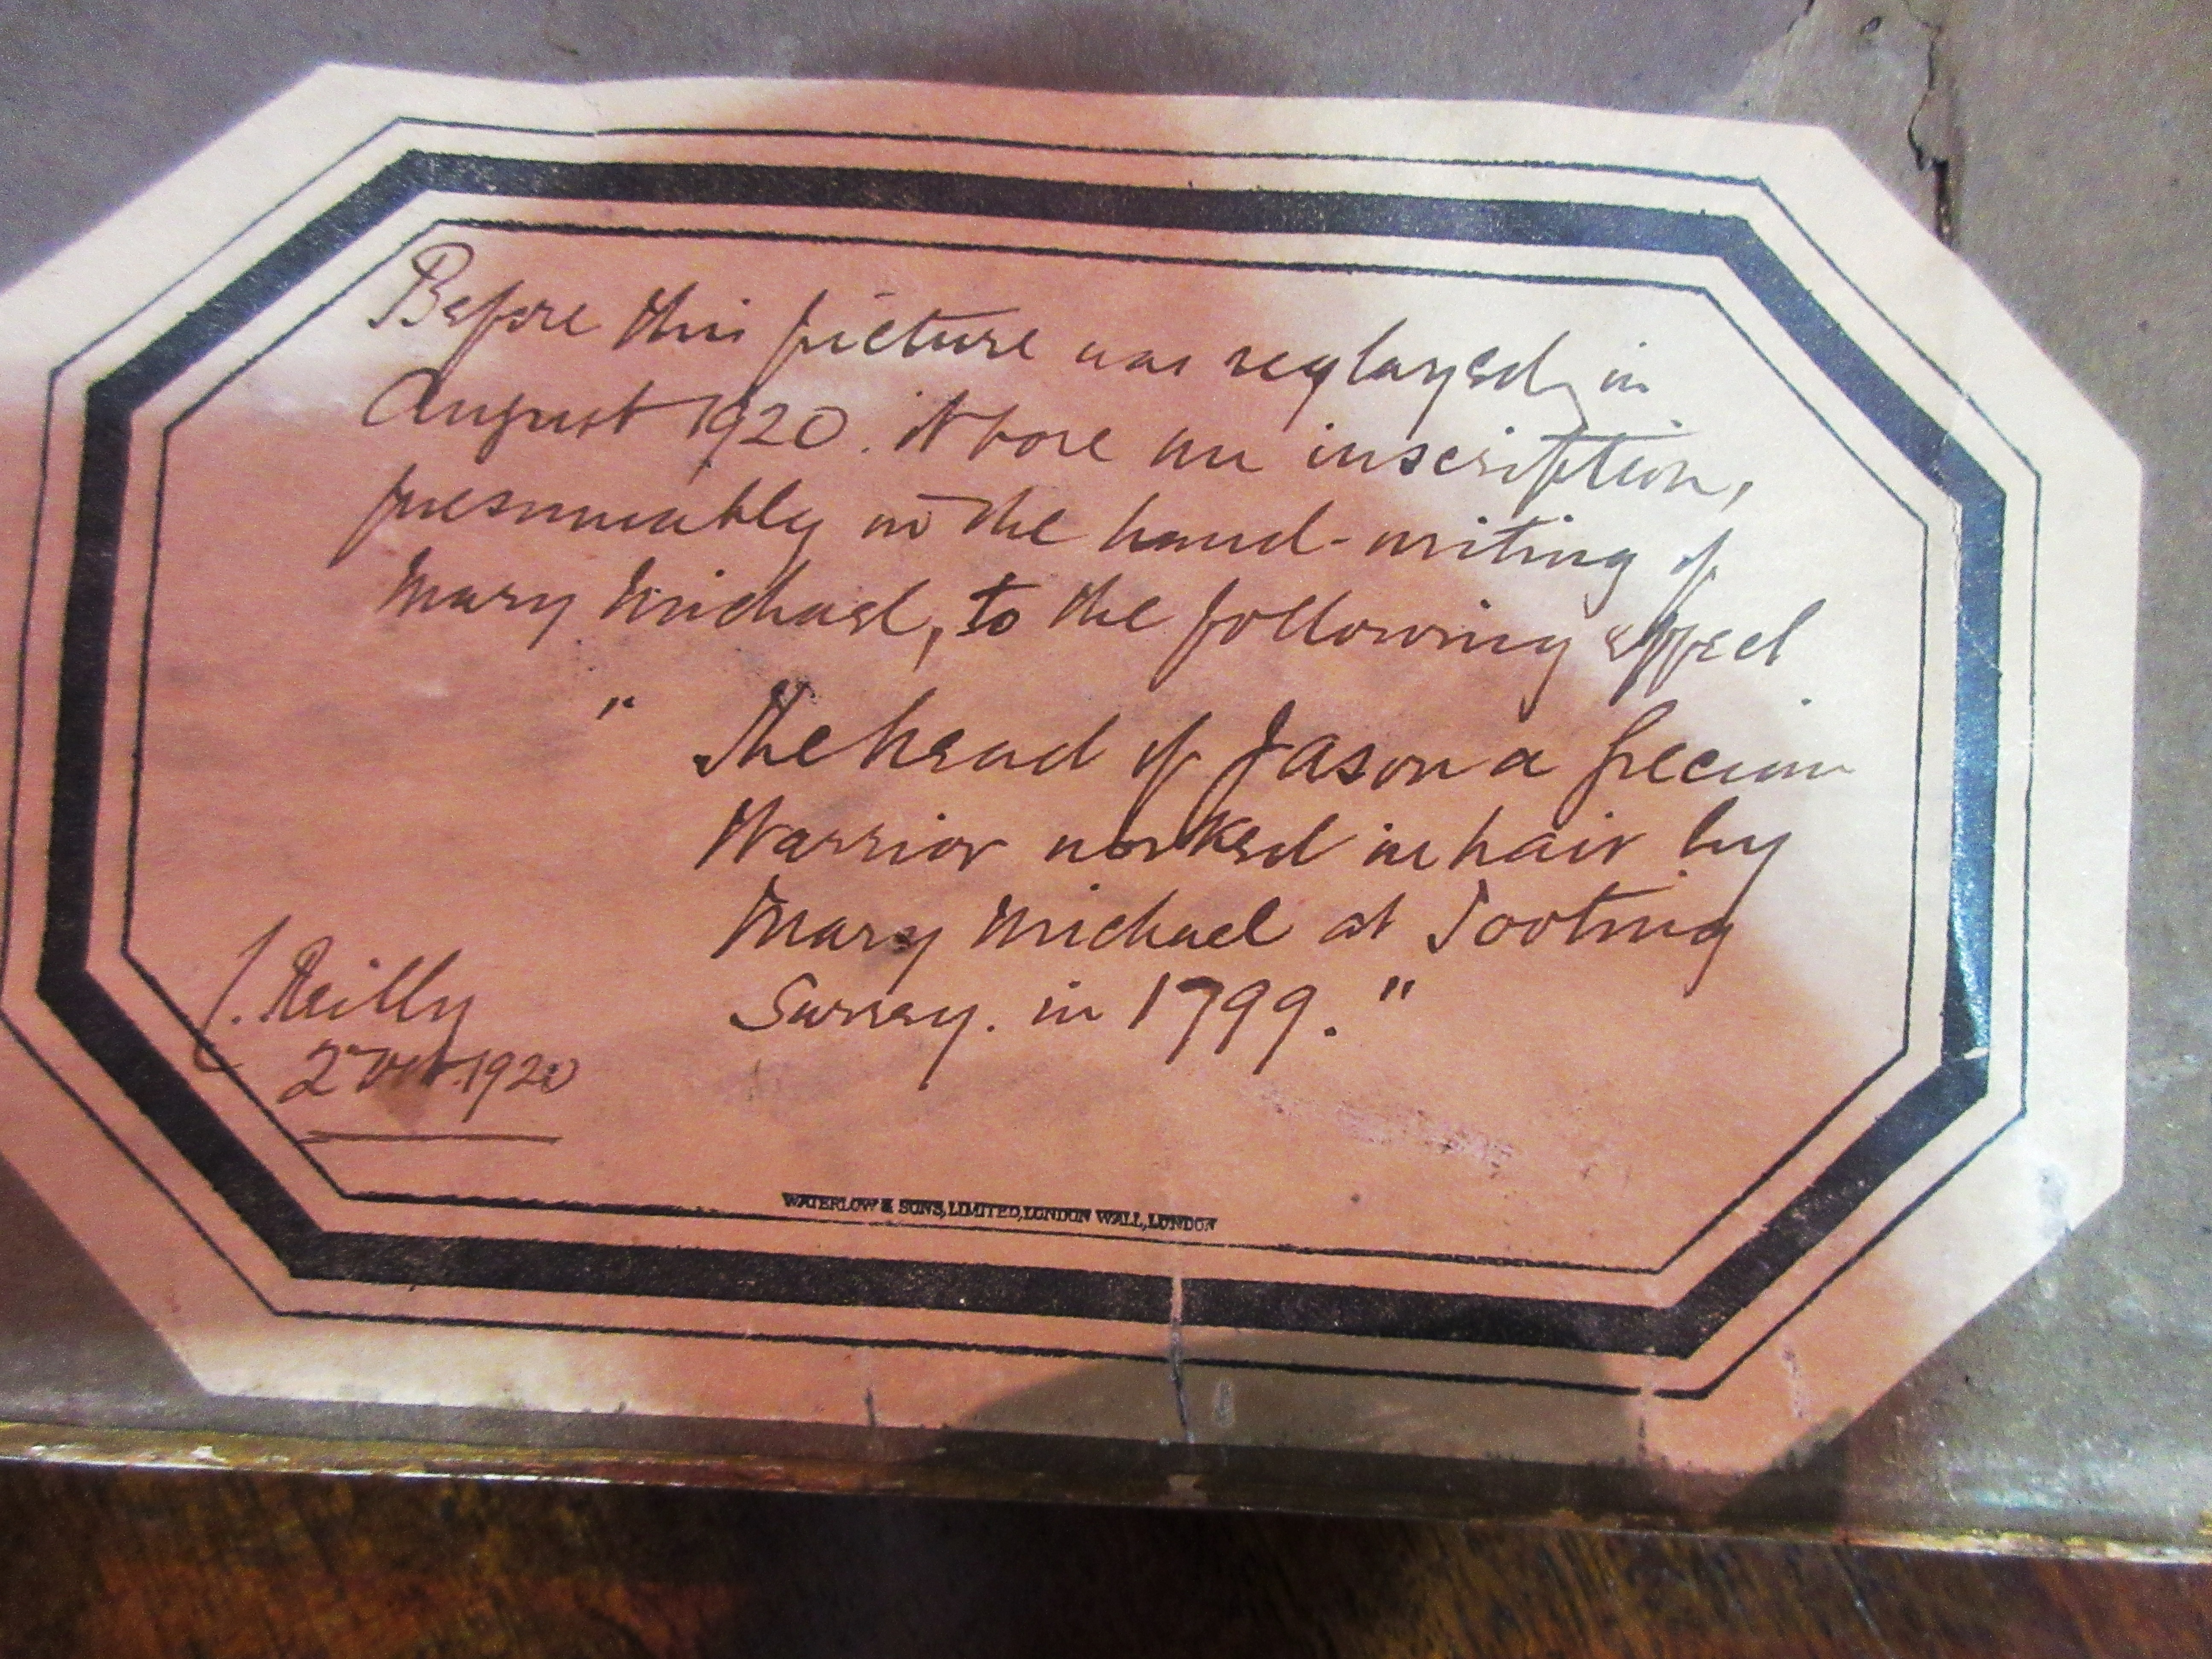 Before this picture was reglazed, in
August 1920. it bore an inscription,
presumably in the hand-writing of
Mary Michael, to the following effect
" The head of Jason a Grecian
Warrior worked in hair by
Mary Michael at Tooting
Surrey. in 1799."
J. Reilly
2nd Oct. 1920
WATERLOW & SONS, LIMITED, LONDON WALL, LONDON